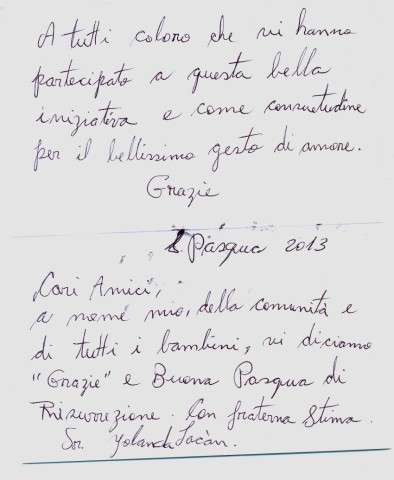 A tutti coloro che vi hanno
partecipato a questa bella
iniziativa e come consuetudine
per il bellissimo gesto di amore.
Grazie
S. Pasqua 2013
Cari Amici,
a nome mio, della comunità e
di tutti i bambini, vi diciamo
"Grazie" e Buona Pasqua di
Risurrezione. Con fraterna Stima.
Sr. Yolanda